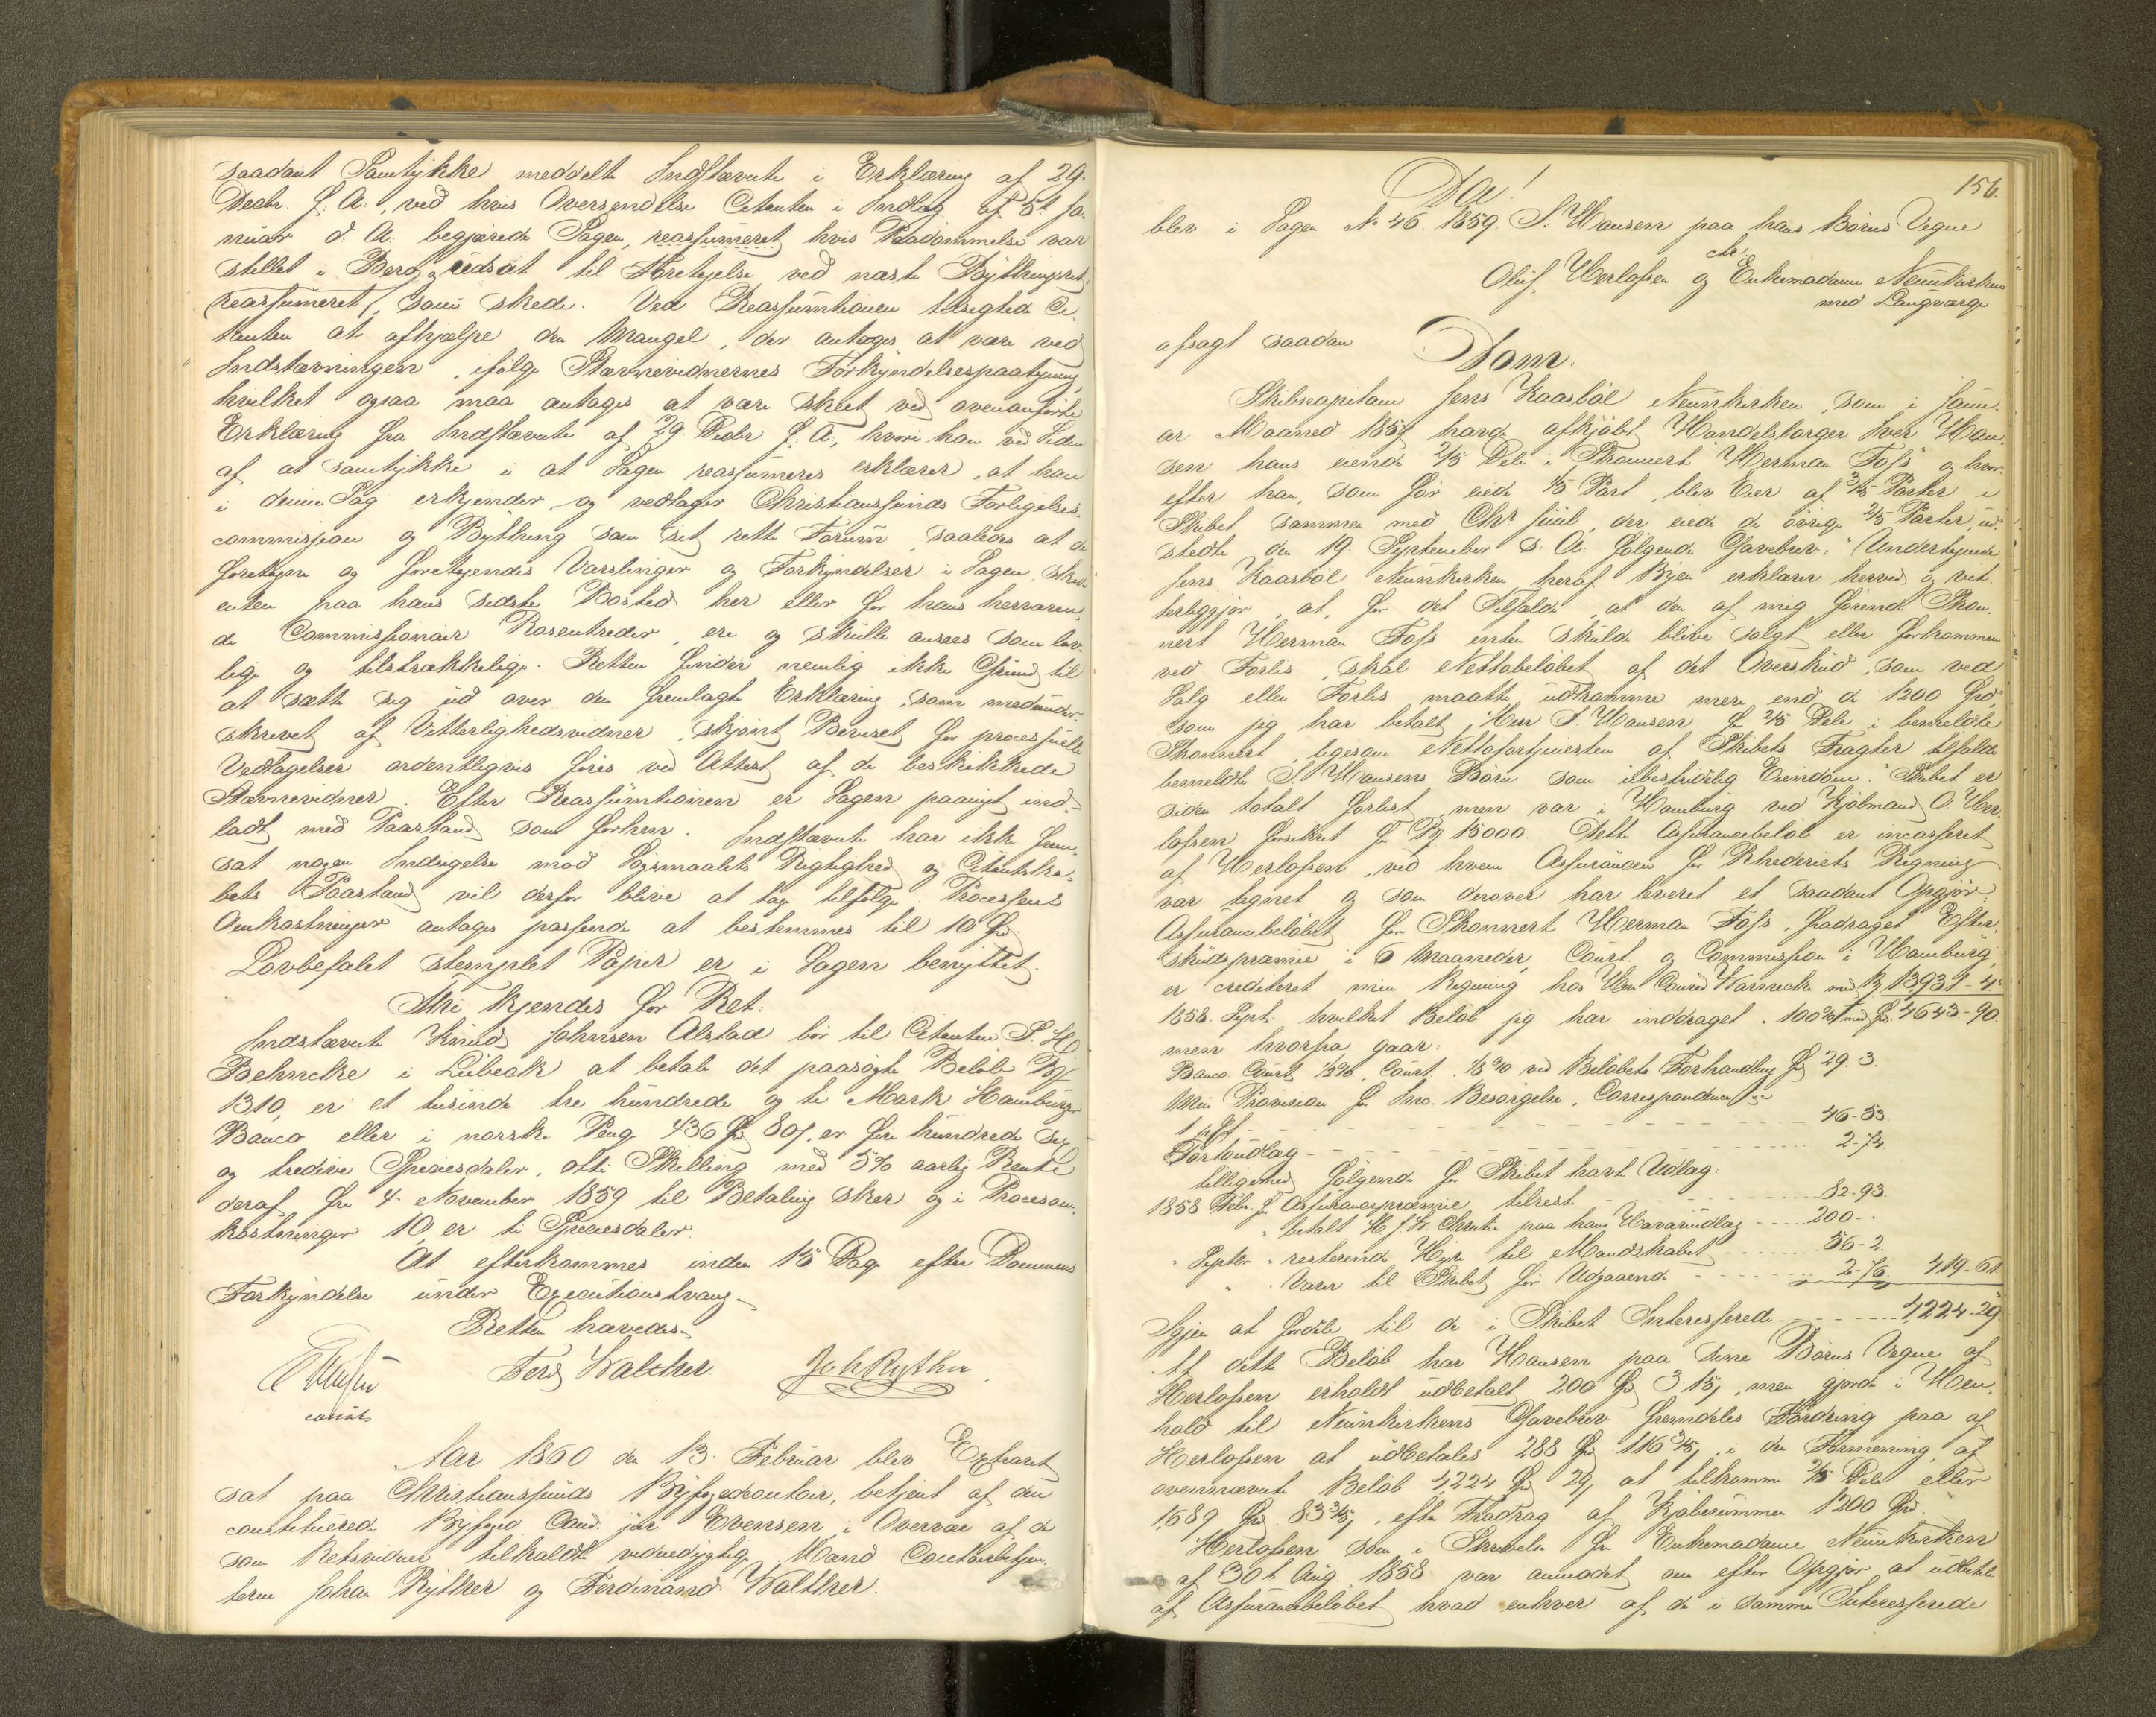 saadant Samtykke meddelt Indstævnte i Erklæring af 29.
Decbr. f. A., ved hvis Oversendelse Citanten i Indlæg af 5t Ja-
nuar d. A. begjærede Sagen, reassumeret, hvis Paadømmelse var
stillet i Bero, udsat til Foretagelse ved næste Bythingsret
(reassumeret), som skede. Ved Reassumtionen tilsigtede Ci-
tanten at afhjælpe den Mangel, der antages at være ved
Indstævningen, ifølge Stævnevidnernes Forkyndelsespaategning,
hvilket ogsaa maa antages at være skeet ved ovenanførte
Erklæring fra Indstævnte af 29 Decbr f. A., hvori han ved Siden
af at samtykke i at Sagen reassumeres erklærer, at han
i denne Sag erkjender og vedtager Christianssunds Forligelses-
commission og Bything som sit rette Forum, saaledes at de
foretagne og foretagendes Varslinger og Forkyndelser i Sagen, skeet
enten paa hans sidste Bosted her eller for hans herværen-
de Commissionair Rosentreder, ere og skulle ansees som lov-
lige og tilstrækkelige. Retten finder nemlig ikke Grund til
at sætte sig ud over den fremlagte Erklæring, som medunder-
skrevet af Vitterlighedsvidner, skjønt Beviset for processuelle
Vedtagelser ordentligvis føres ved Attest af de beskikkede
Stævnevidner. Efter Reassumtionen er Sagen paanyt ind-
ladt med Paastand som forhen. Indstævnte har ikke frem-
sat nogen Indsigelse mod Søgsmaalets Rigtighed og Citantska-
bets Paastand vil derfor blive at tage tilfølge. Processens
Omkostninger antages passende at bestemmes til 10 Spd.
Lovbefalet stemplet Papir er i Sagen benyttet.
Thi kjendes for Ret:
Indstævnte Knud Johnsen Alstad bør til Citanten S. H.
Behncke i Lübeck at betale det paasøgte Beløb B
1310, er et tusinde tre hundrede og ti Mark Hamburger
Banco eller i norske Penge 436 Spd 80 s. er fire hundrede sex
og tredive Speciesdaler, otti Skilling med 5% aarlig Rente
deraf fra 4. November 1859 til Betaling sker og i Procesom-
kostninger 10, er ti Speciesdaler.
At efterkommes inden 15 Dage efter Dommens
Forkyndelse under Executionstvang.
Retten hævedes.
Ferd Walther Joh Ryther
const
Aar 1860 den 13. Februar blev Extraret
sat paa Christianssunds Byfogedcontoir, betjent af den
constituerede Byfoged Cand. jur. Evensen, i Overvær af de
som Retsvidner tilkaldte vederhæftige Mænd Contoirbetjen-
terne Johan Ryther og Ferdinand Walther.
156.
Da!
blev i Sagen No 46. 1859. I. Hansen paa hans Børns Vegne
ctr.
Oluf Herlofsen og Enkemadame Neunkirken
med Laugværge
afsagt saadan
Dom:
Skibscapitain Jens Kaasbøl Neunkirken, som i Janu-
ar Maaned 1857 havde afkjøbt Handelsborger Iver Han-
sen hans eiende 2/5 Dele i Skonnert "Herman Foss" og hvor-
efter han, som før eiede 1/5 Part, blev Eier af 3/5 Parter i
Skibet sammen med Chr Juul, der eiede de øvrige 2/5 Parter, ud-
stedte den 19 September s. A. følgende Gavebrev: "Undertegnede
Jens Kaasbøl Neunkirken heraf Byen erklærer herved og vit-
terliggjør, at, for det Tilfælde, at den af mig førende Skon-
nert Herman Foss enten skulde blive solgt eller forkommen
ved Forlis, skal Nettobeløbet af det Overskud, som ved
Salg eller Forlis maatte udkomme mere end de 1200 Spd,
som jeg har betalt Herr I. Hansen for 2/5 Dele i bemeldte
Skonnert, ligesom Nettofortjenesten af Skibets Fragter tilfalde
bemeldte I. Hansens Børn som ubestridelig Eiendom." Skibet er
siden totalt forlist, men var i Hamburg ved Kjøbmand O Her-
lofsen forsikret for B 15000. Dette Assurancebeløb er incasseret
af Herlofsen, ved hvem Assurancen for Rhederiets Regning
var tegnet og som derover har leveret et saadant Opgjør:
Assurancebeløbet for Skonnert Herman Foss, fradraget Efter-
skudspræmie i 6 Maaneder, Court. og Commission i Hamburg,
er crediteret min Regning hos Herr Conrad Warnecke med B 13,931-4
1858. Sept. hvilket Beløb jeg har inddraget. 100% med Spd. 4643-90.
men hvorfra gaar:
Banco Court. 1/2%, Court. 1/8% ved Beløbets Forhandling Spd 29. 3.
Min Provision for Inc. Besørgelse, Correspondence
1 pCt - - - - 46-53.
Portoudlæg - - - - 2-74.
tilligemed følgende for Skibet havte Udlæg:
1858 Febr. for Assurancepræmie tilrest - - - - 82-93
" betalt paa hans Havariudlæg - - - - 200-"
" Septbr " resterende Hyre til Mandskabet - - - - 56-2.
" " Varer til Skibet før Udgaaende - - - - 2-76. 419-61
Igjen at fordele til de i Skibet Interesserede - - - - 4,224-29
Af dette Beløb har Hansen paa sine Børns Vegne af
Herlofsen erholdt udbetalt 200 Spd 3. 15 s, men gjorde i Hen-
hold til Neunkirkens Gavebrev fremdeles Fordring paa af
Herlofsen at udbetales 288 Spd 116 3/5 s, i den Formening, af
ovennævnte Beløb 4,224 Spd 29 s at tilkomme 2/5 Dele eller
1,689 Spd 83 3/5 s, efter Fradrag af Kjøbesummen 1200 Spd.
Herlofsen som i Skrivelse fra Enkemadame Neunkirken
af 30t Aug. 1858 var anmodet om efter Opgjør at udbetale
af Assurancebeløbet hvad enhver af de i samme Interesserede